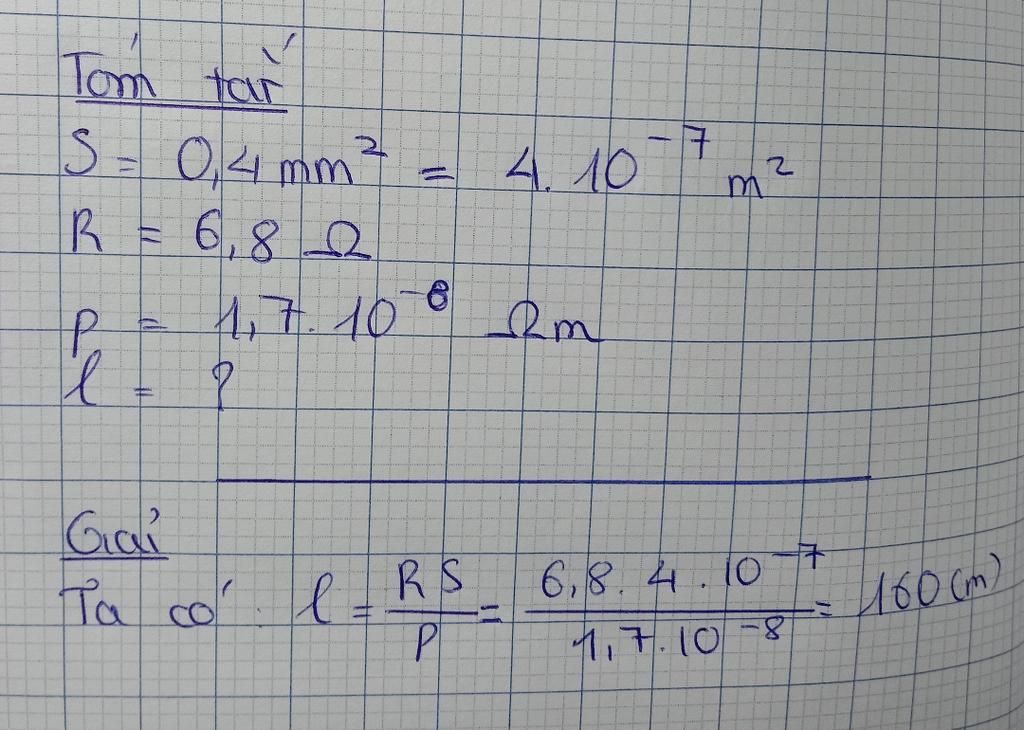 Tóm tắt
S = 0,4 mm² = 4. 10⁻⁷ m²
R = 6,8 Ω
ρ = 1,7. 10⁻⁸ Ωm
l = ?
Giải
Ta có: l = RS/ρ = 6,8. 4. 10⁻⁷/1,7. 10⁻⁸ = 160 (m)